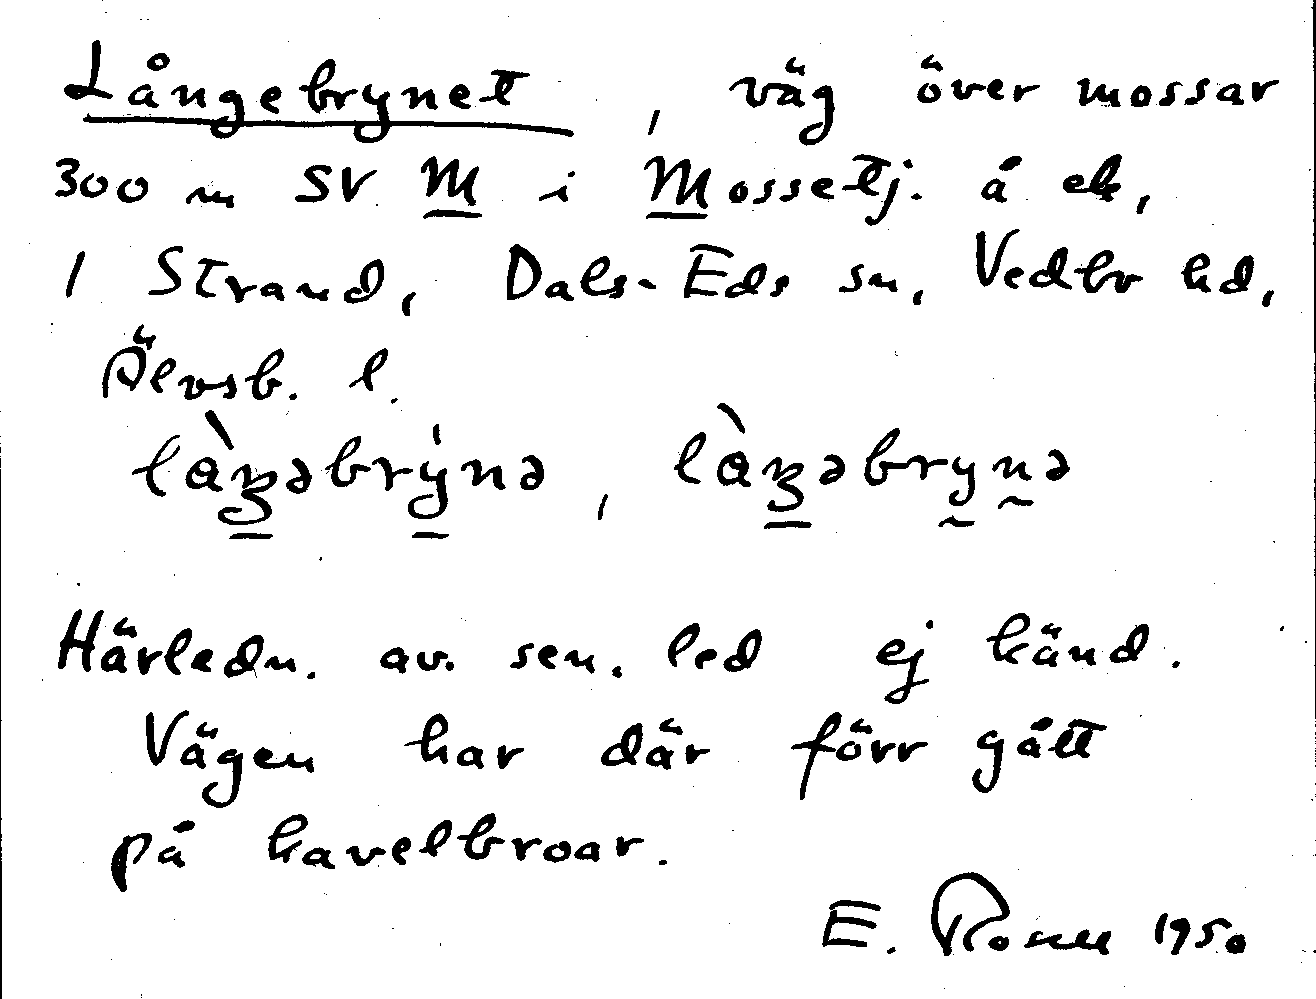 Långebrynet, väg över mossar
300 m SV M i Mossetj. å ek,
1 Strand, Dals-Eds sn, Vedbo hd,
Älvsb. l.
Härledn. av sen. led ej känd.
Vägen har där förr gått
på kavelbroar.
E. 1950